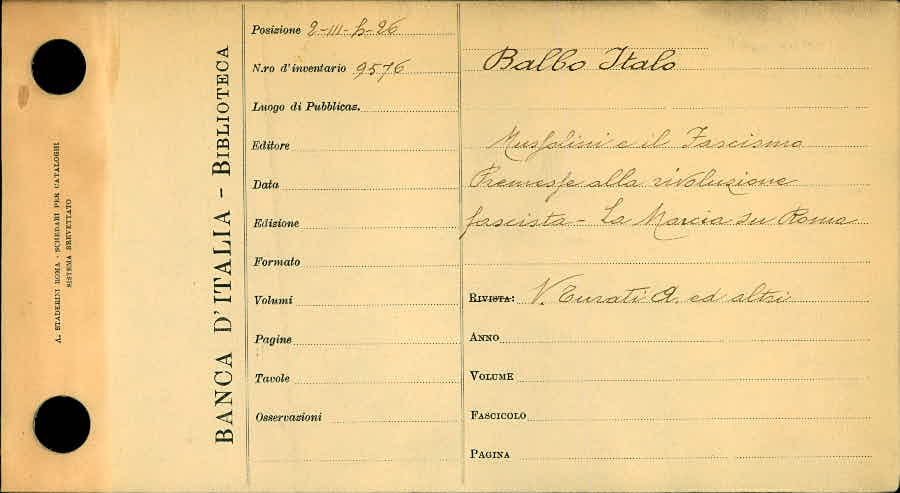 A. STADERINI ROMA - SCHEDARI PER CATALOGHI
SISTEMA BREVETTATO
BANCA D'ITALIA - BIBLIOTECA
Posizione 2-III-h-26
N.ro d'inventario 9576
Luogo di Pubblicaz.
Editore
Data
Edizione
Formato
Volumi
Pagine
Tavole
Osservazioni
Balbo Italo
Mussolini e il Fascismo
Premesse alla rivoluzione
fascista - La Marcia su Roma
RIVISTA: V. Turati A. ed altri
ANNO
VOLUME
FASCICOLO
PAGINA